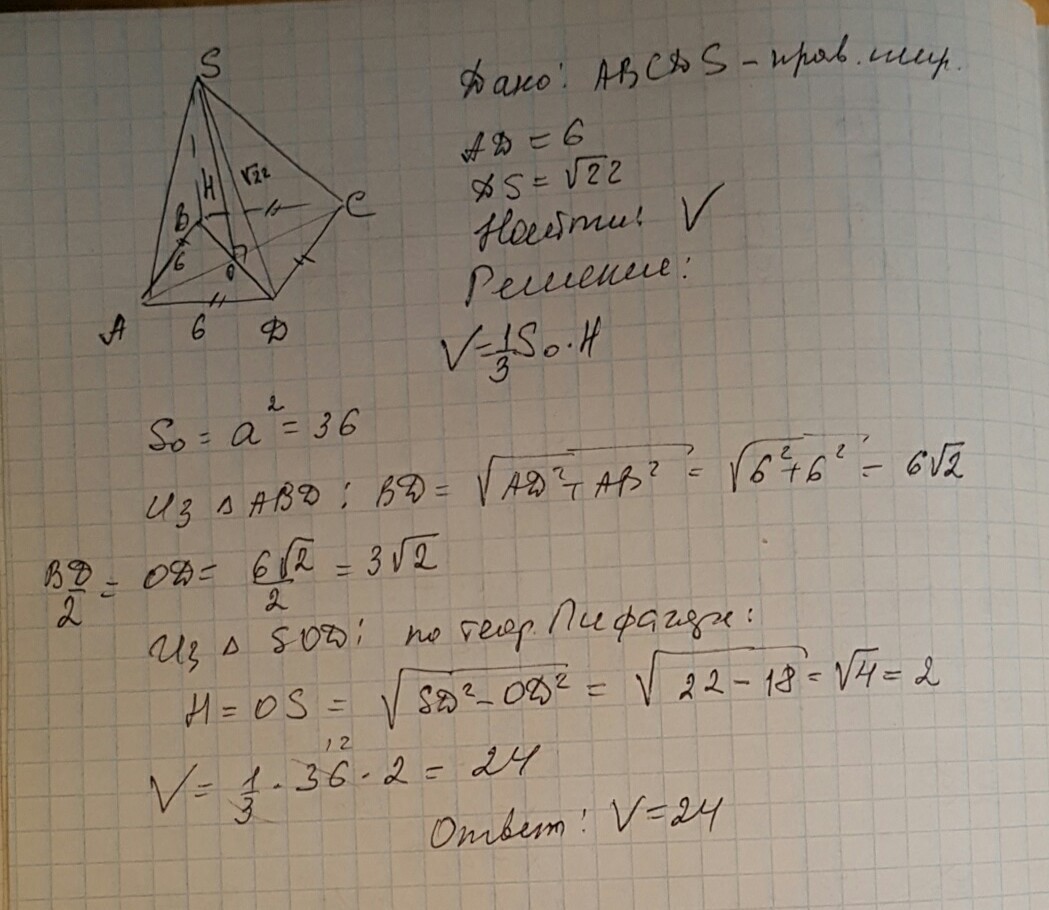 S
√22
H
B
C
6
O
A
6
D
Дано: ABCDS - прав. пир.
AD = 6
DS = √22
Найти: V
Решение:
V = 1/3 S₀ · H
S₀ = a² = 36
Из Δ ABD : BD = √(AD² + AB²) = √(6² + 6²) = 6√2
BD/2 = OD = 6√2/2 = 3√2
Из Δ SOD: по теор. Пифагора:
H = OS = √(SD² - OD²) = √(22 - 18) = √4 = 2
12
V = 1/3 · 36 · 2 = 24
Ответ: V = 24